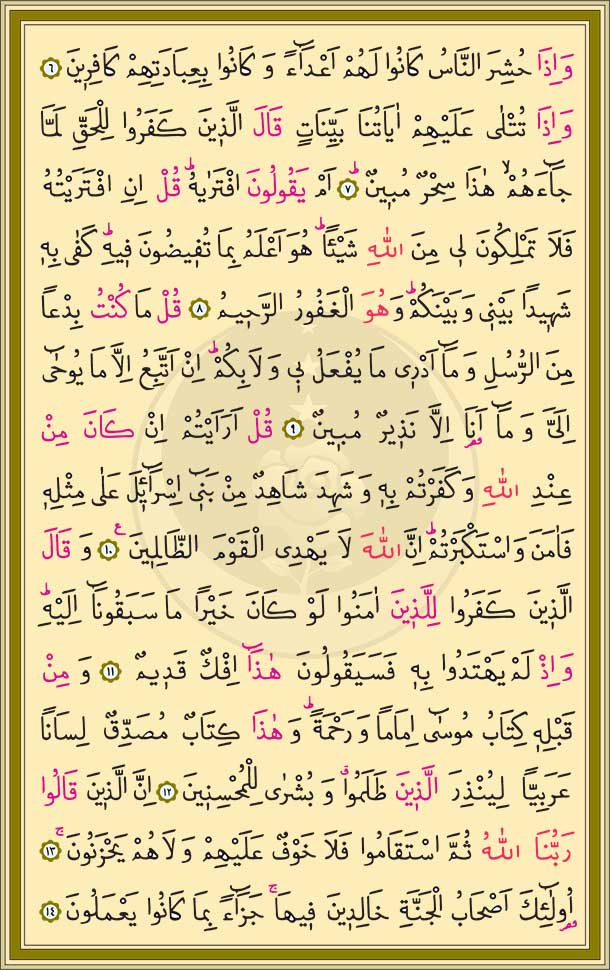 وَاِذَا حُشِرَ النَّاسُ كَانُوا لَهُمْ اَعْدَٓاءً وَ كَانُوا بِعِبَادَتِهِمْ كَافِرٖينَ ٦
وَاِذَا تُتْلٰى عَلَيْهِمْ اٰيَاتُنَا بَيِّنَاتٍ قَالَ الَّذٖينَ كَفَرُوا لِلْحَقِّ لَمَّا
جَٓاءَهُمْۙ هٰذَا سِحْرٌ مُبٖينٌؕ ٧ اَمْ يَقُولُونَ افْتَرٰيهُؕ قُلْ اِنِ افْتَرَيْتُهُ
فَلَا تَمْلِكُونَ لٖى مِنَ اللّٰهِ شَيْـًٔاؕ هُوَ اَعْلَمُ بِمَا تُفٖيضُونَ فٖيهِؕ كَفٰى بِهٖ
شَهٖيدًا بَيْنٖى وَ بَيْنَكُمْؕ وَهُوَ الْغَفُورُ الرَّحٖيمُ ٨ قُلْ مَا كُنْتُ بِدْعًا
مِنَ الرُّسُلِ وَ مَٓا اَدْرٖى مَا يُفْعَلُ بٖى وَ لَا بِكُمْؕ اِنْ اَتَّبِعُ اِلَّا مَا يُوحٰٓى
اِلَیَّ وَ مَٓا اَنَا۬ اِلَّا نَذٖيرٌ مُبٖينٌ ٩ قُلْ اَرَاَيْتُمْ اِنْ كَانَ مِنْ
عِنْدِ اللّٰهِ وَ كَفَرْتُمْ بِهٖ وَ شَهِدَ شَاهِدٌ مِنْ بَنٖٓى اِسْرَٓائٖلَ عَلٰى مِثْلِهٖ
فَاٰمَنَ وَ اسْتَكْبَرْتُمْؕ اِنَّ اللّٰهَ لَا يَهْدِى الْقَوْمَ الظَّالِمٖينَ ع ١٠ وَ قَالَ
الَّذٖينَ كَفَرُوا لِلَّذٖينَ اٰمَنُوا لَوْ كَانَ خَيْرًا مَا سَبَقُونَٓا اِلَيْهِؕ
وَاِذْ لَمْ يَهْتَدُوا بِهٖ فَسَيَقُولُونَ هٰذَٓا اِفْكٌ قَدٖيمٌ ١١ وَ مِنْ
قَبْلِهٖ كِتَابُ مُوسٰٓى اِمَامًا وَ رَحْمَةًؕ وَ هٰذَا كِتَابٌ مُصَدِّقٌ لِسَانًا
عَرَبِيًّا لِيُنْذِرَ الَّذٖينَ ظَلَمُواۗ وَ بُشْرٰى لِلْمُحْسِنٖينَ ١٢ اِنَّ الَّذٖينَ قَالُوا
رَبُّنَا اللّٰهُ ثُمَّ اسْتَقَامُوا فَلَا خَوْفٌ عَلَيْهِمْ وَ لَا هُمْ يَحْزَنُونَۚ ١٣
اُو۬لٰٓئِكَ اَصْحَابُ الْجَنَّةِ خَالِدٖينَ فٖيهَاۚ جَزَٓاءً بِمَا كَانُوا يَعْمَلُونَ ١٤